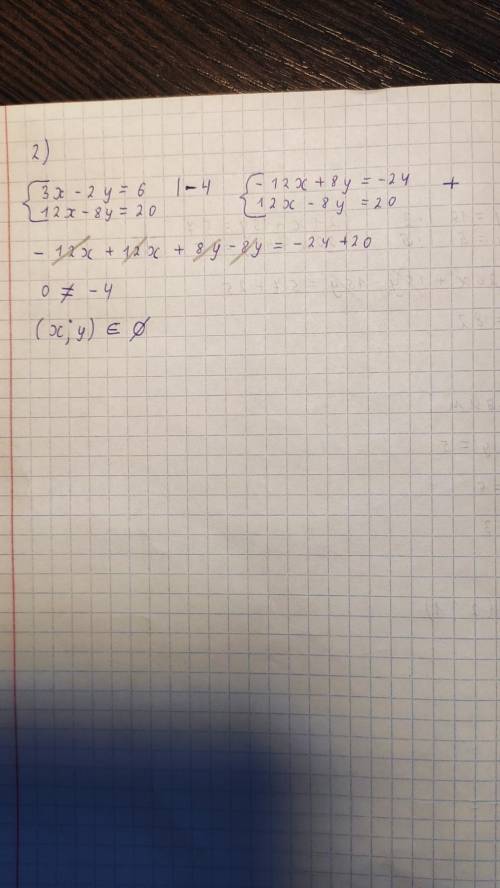 2)
{3x - 2y = 6 |-4 {-12x + 8y = -24 +
{12x - 8y = 20 {12x - 8y = 20
- 12x + 12x + 8y - 8y = -24 + 20
0 ≠ -4
(x; y) ∈ ∅